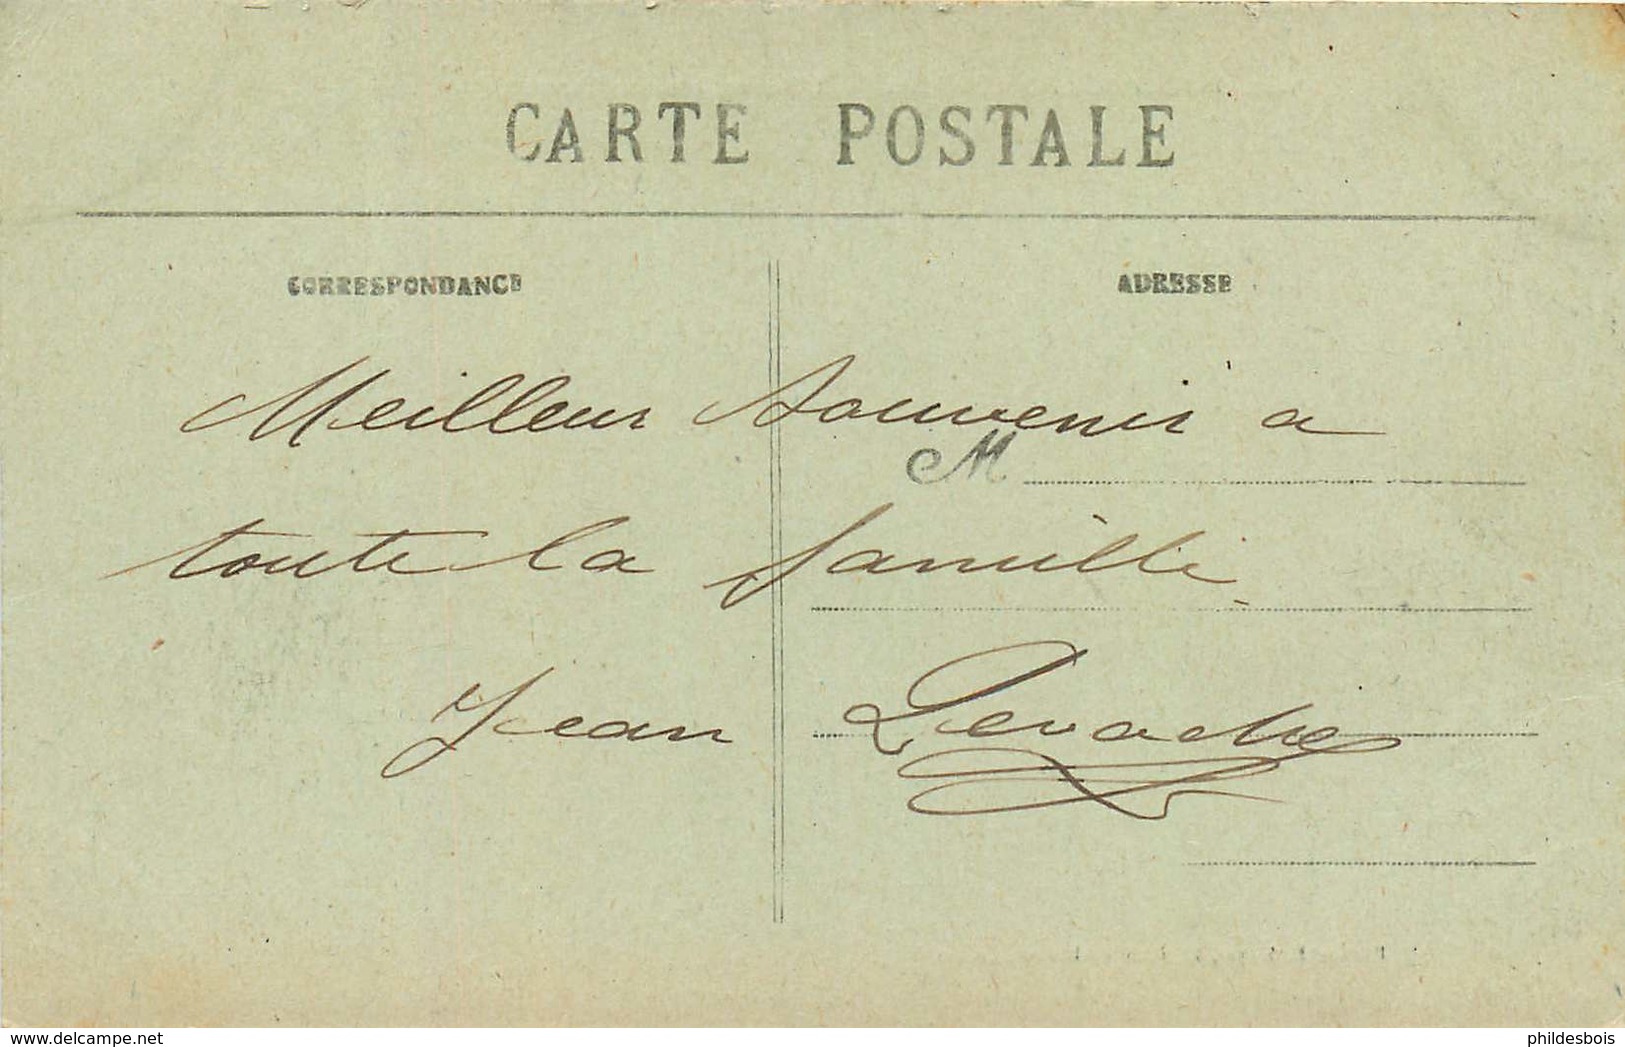 CARTE POSTALE
CORRESPONDANCE
ADRESSE
Meilleur Souvenir à
M
toute la famille
Jean Devache
www.delcampe.net
phildesbois